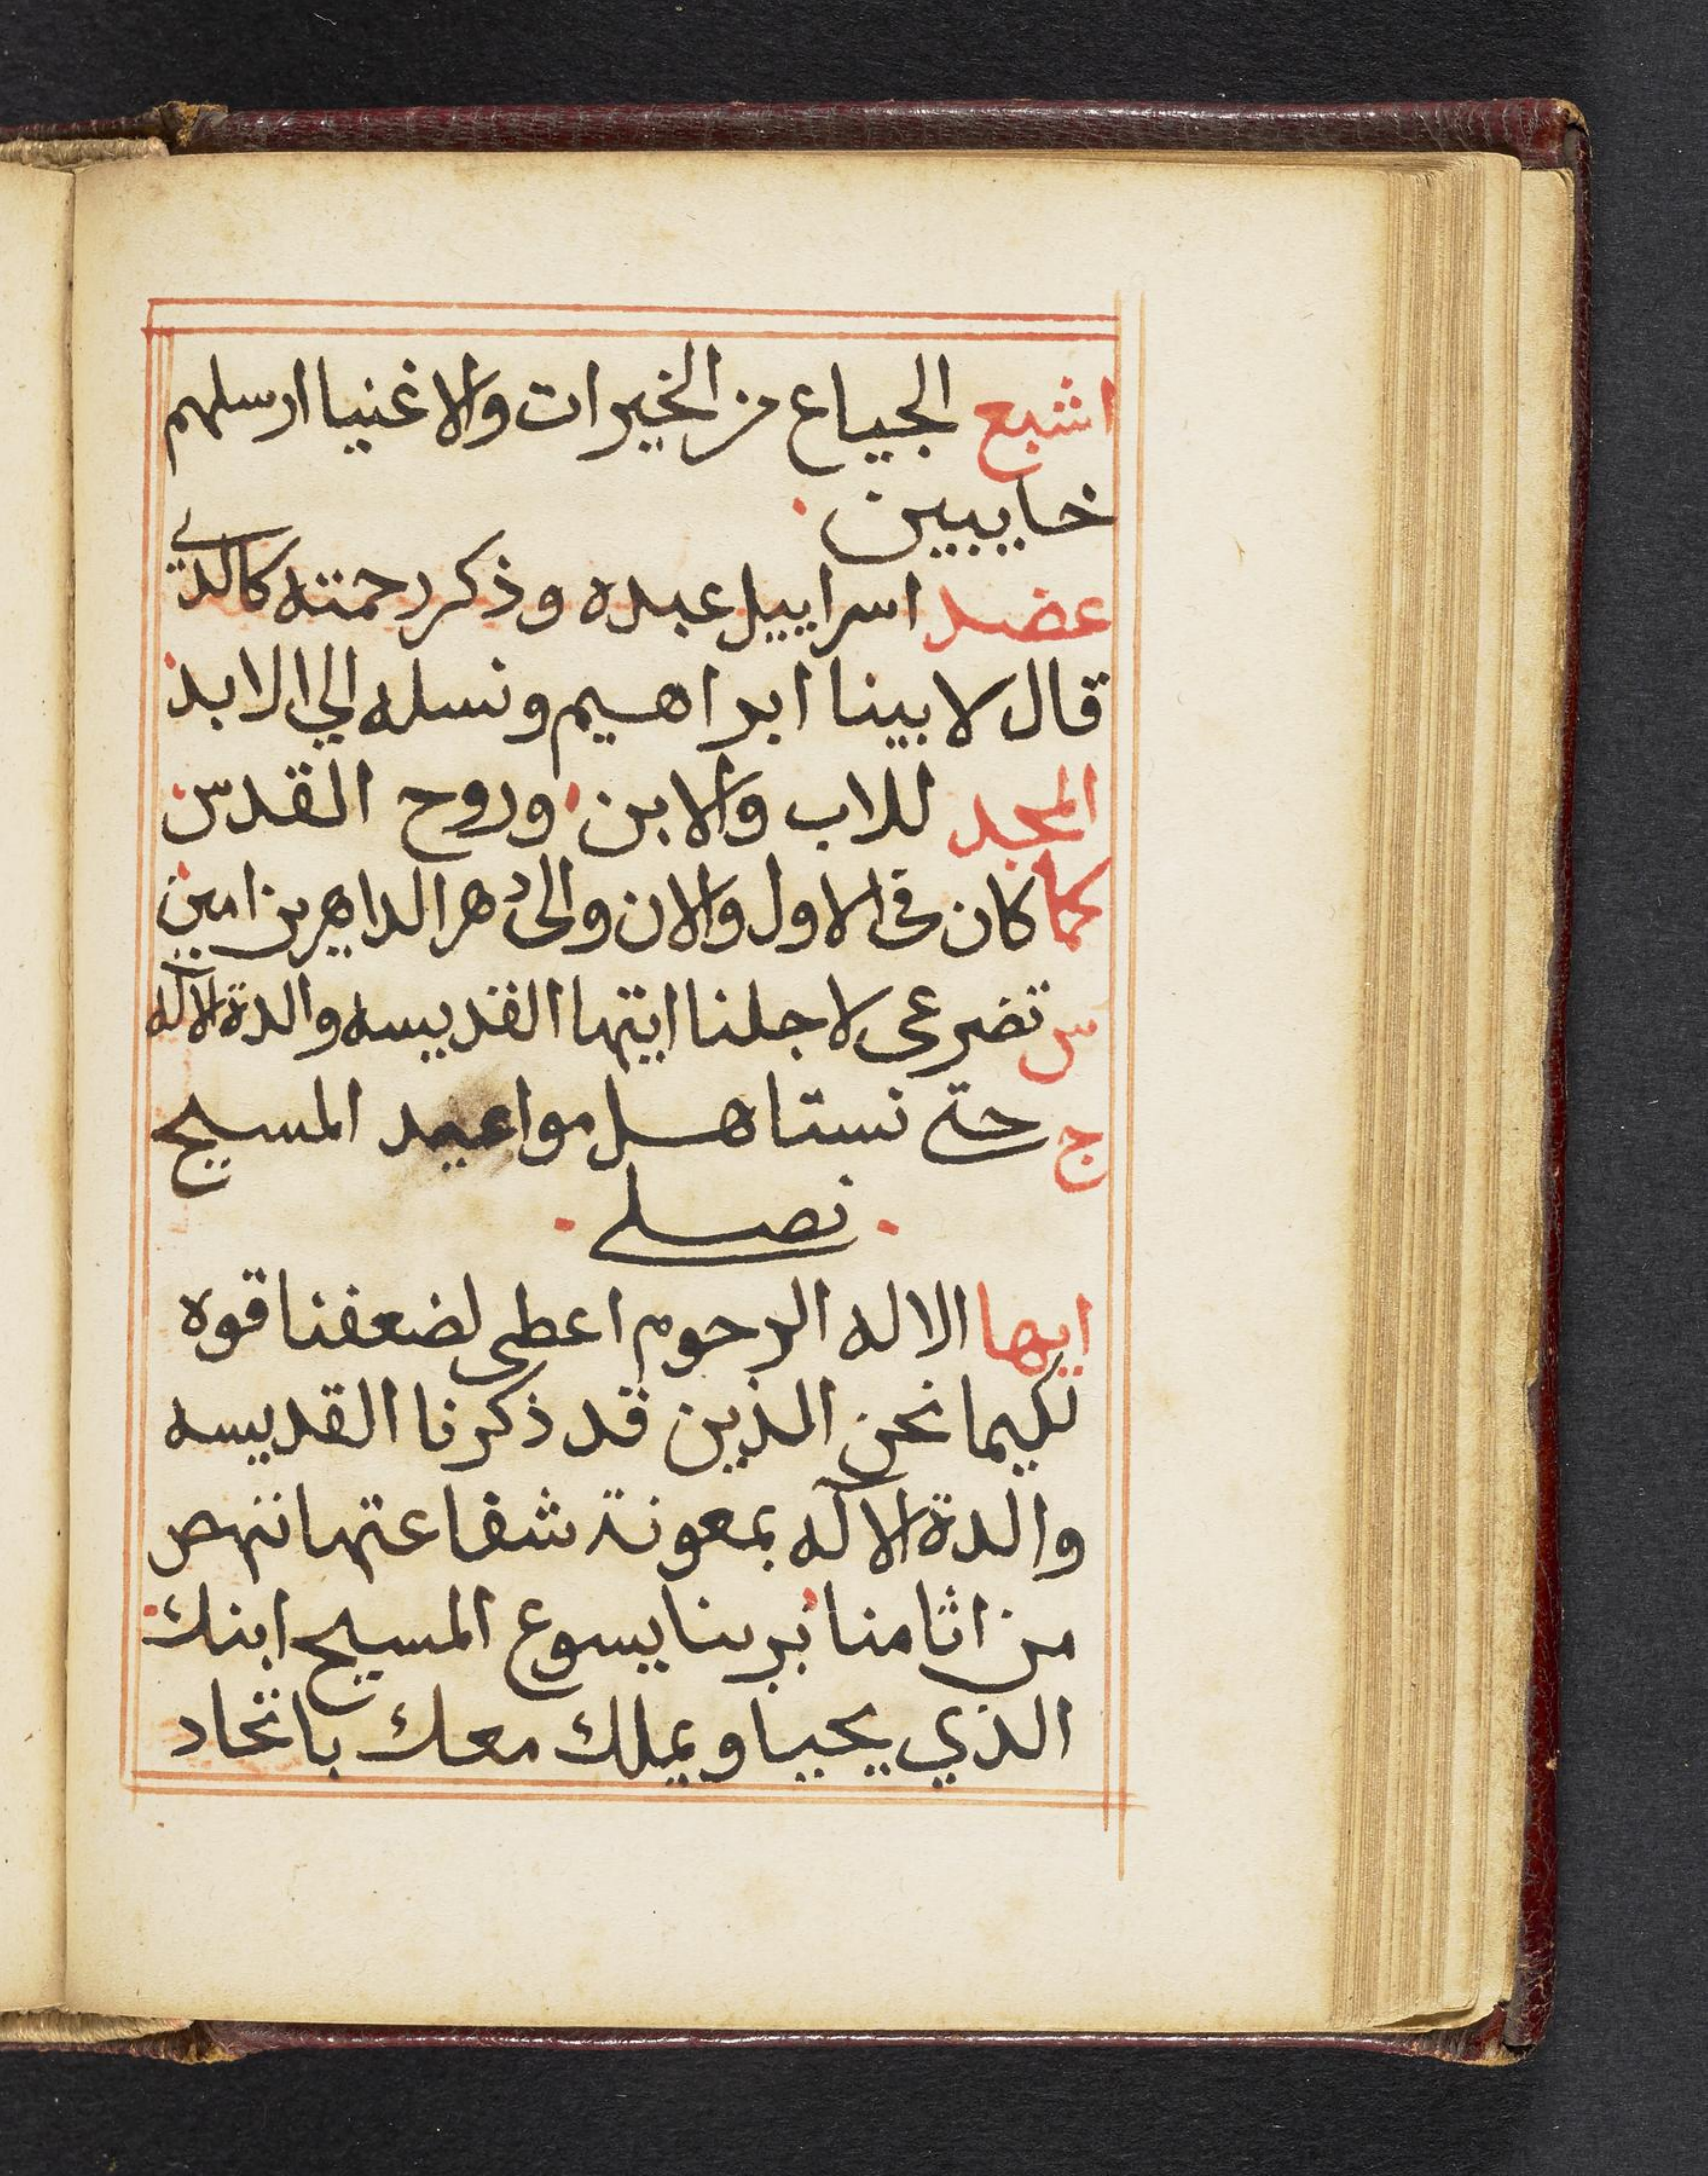 اشبع الجياع من الخيرات والاغنيا ارسلهم
خايبين
عضد اسراييل عبده وذكر رحمته كالذي
قال لابينا ابراهيم ونسله الي الابد
المجد للاب والابن وروح القدس
كما كان في الاول والان والى دهر الداهرين امين
س تضرعي لاجلنا ايتها القديسه والدة الاله
ج حتى نستاهل مواعيد المسيح
نصلي
ايها الاله الرحوم اعطي لضعفنا قوه
لكيما نحن الذين قد ذكرنا القديسه
والدة الاله بمعونة شفاعتها ننهض
من اثامنا بربنا يسوع المسيح ابنك
الذي يحيا ويملك معك باتحاد